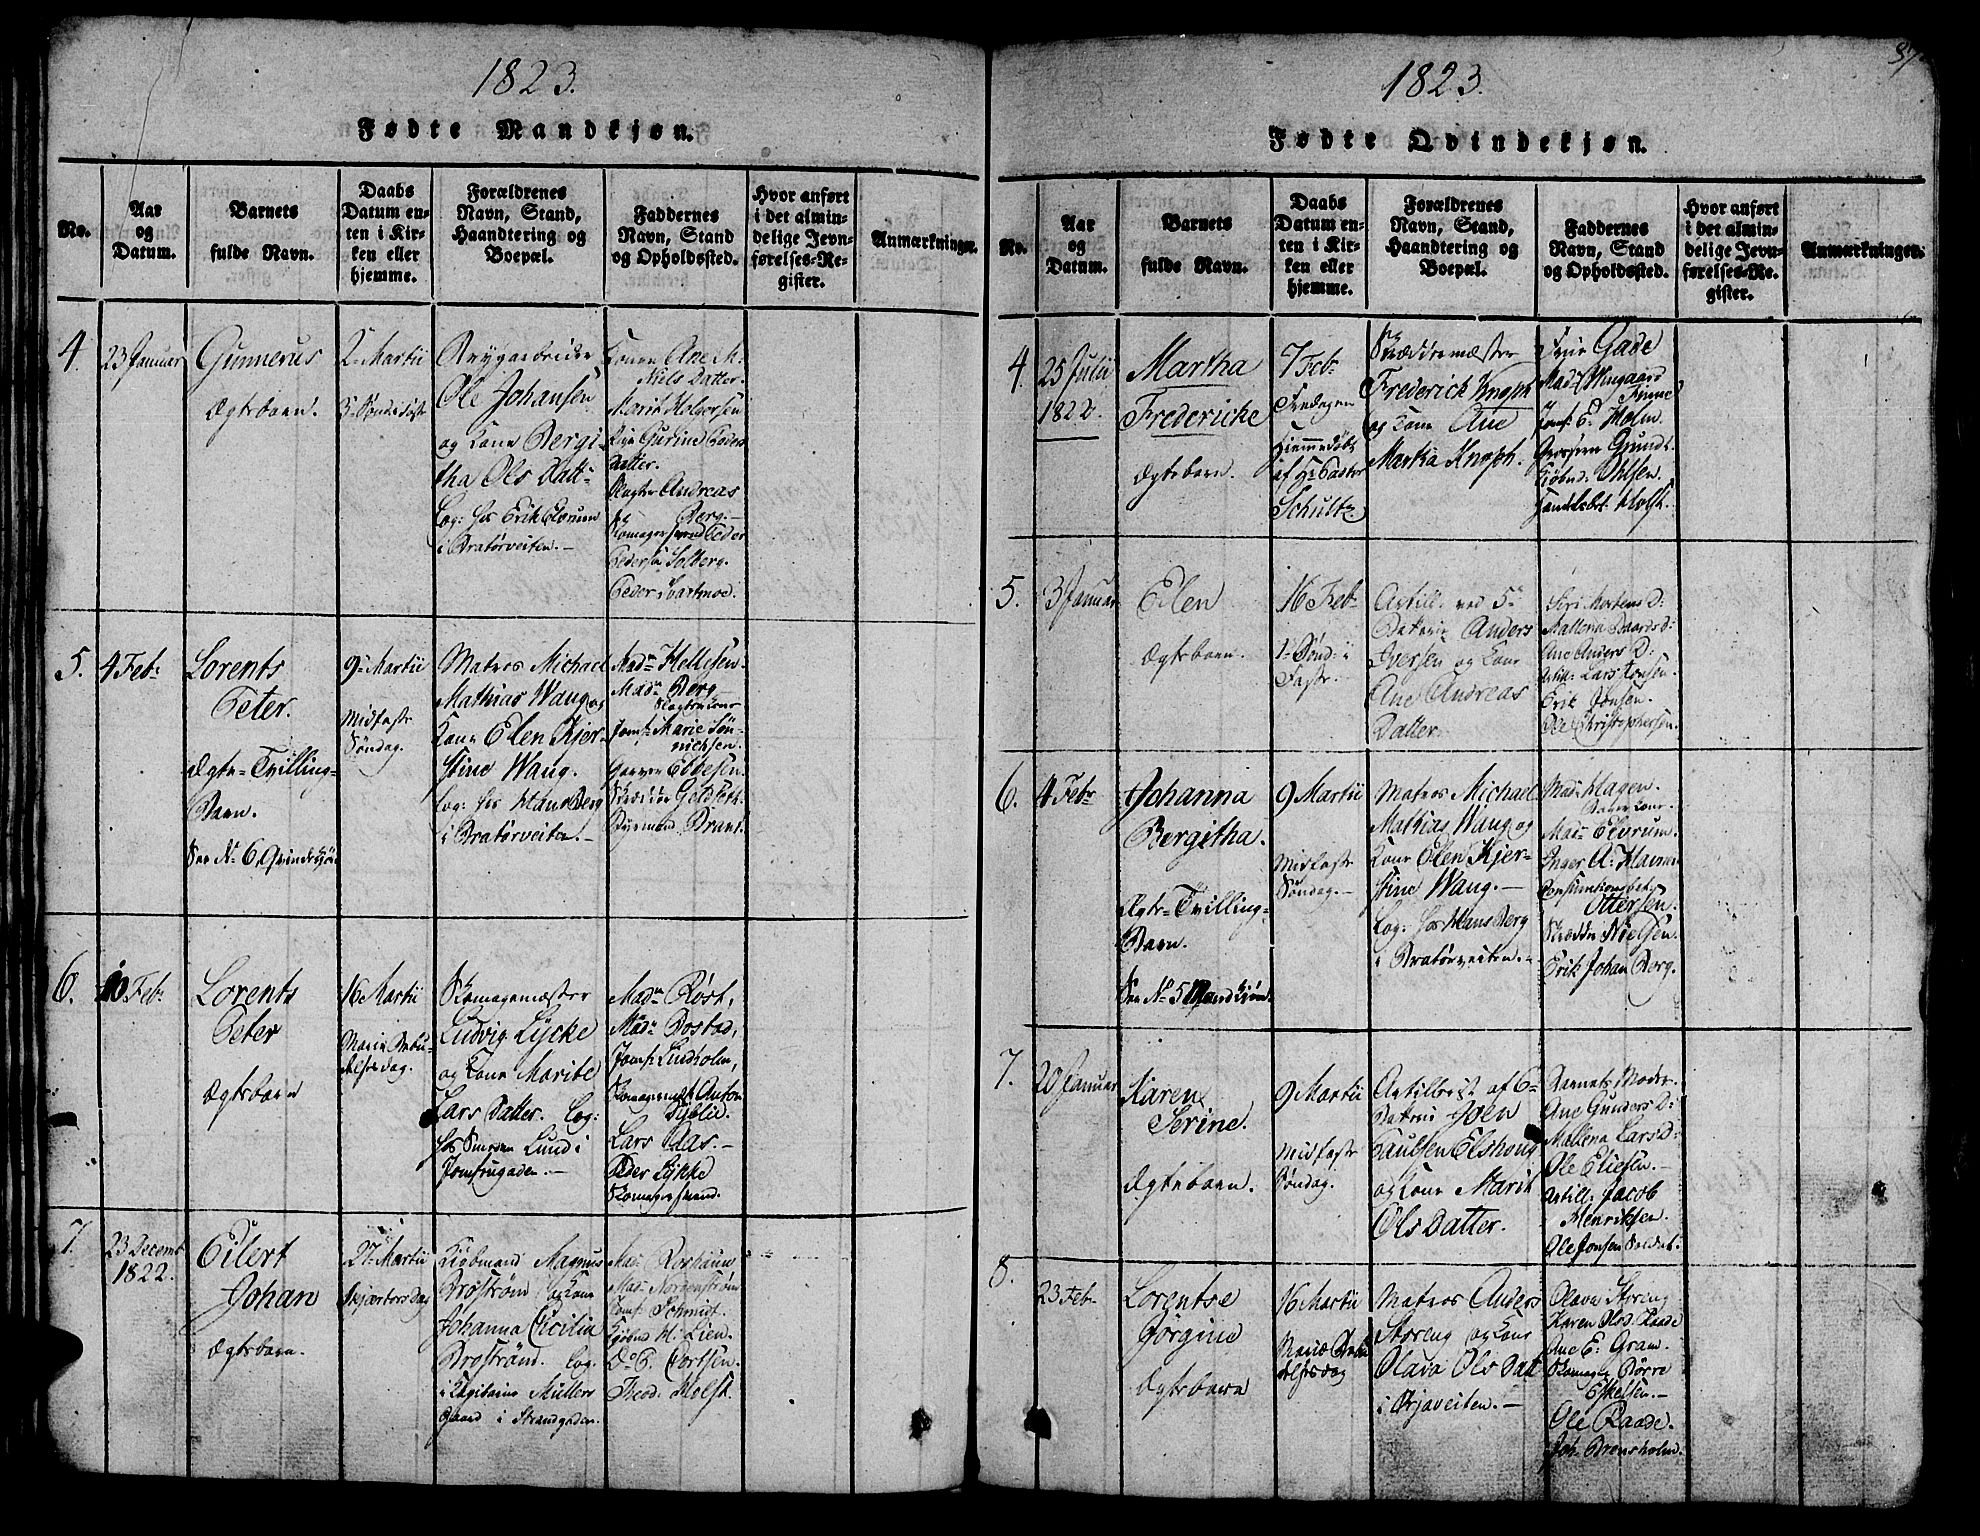 1823.
Fødte Mandkjøn.
No.
Aar
og
Datum.
Barnets
fulde Navn.
Daabs
Datum en-
ten i Kir-
ken eller
hjemme.
Forældrenes
Navn, Stand,
Haandtering og
Boepæl.
Faddernes
Navn, Stand
og Opholdssted.
Hvor anført
i det almin-
delige Jevn-
førelses-Re-
gister.
Anmærkninger.
4.
23 Januar
Gunnerus
Ægtebarn.
2 Martii
3 Sønd i Faste
Brygarbeider
Ole Johansen
og Kone Bergi-
tha Ols Datt
Log: hos Erik Elvrum
i Bratørveiten.
Konen Ane M:
Niels Datter.
Marit Holgersen
Pige Gurine Peders
Datter.
Slagter Andreas
Berg.
Skomagersvend Peder
Pedersen Solberg.
Peder Svartmoe.
5.
4 Feb:
Lorents
Peter.
Ægte-Tvilling-
Barn.
See No 6. Qvindekjøn
9 Martii
Midfaste
Søndag.
Matros Michael
Mathias Waug og
Kone Elen Kjer-
stine Waug.
Log: hos Hans Berg
i Bratørveiten.
Mad: Hellesen
Mad: Berg
Slagterkone
Jomf: Marie Søn-
nichsen.
Garver Ebbesen.
Skrædder Gildseth.
Styrmand Brant.
6.
10 Feb:
Lorents
Peter
Ægtebarn
16 Martii
Mariæ Bebu-
delsesdag.
Skomagermester
Ludvig Lycke
og Kone Marite
Lars Datter. Log:
hos Snedker Lund i
Jomfrugaden.
Mad: Røst,
Mad: Bostad,
Jomf: Lindholm,
Skomagermester Anton
Dyblie.
Lars Aas.
Peder Lykke
Skomagersvend.
7.
23 Decemb
1822.
Eilert
Johan
Ægtebarn.
27 Martii
Skjærtorsdag
Kiøbmand Magnus
Brostrøm og Kone
Johanna Cicilia
Brostrøm. Log:
i Capitaine Müllers
Gaard i Strandgaden.
Mad: Rosbaum
Mad: Norgenstrøm
Jomf: Schmidt.
Kjøbmd M. Lien.
Do C. Portsen.
Theod. Holst.
1823.
87.
Fødte Qvindekjøn.
No.
Aar
og
Datum.
Barnets
fulde Navn.
Daabs
Datum en-
ten i Kir-
ken eller
hjemme.
Forældrenes
Navn, Stand,
Haandtering og
Boepæl.
Faddernes
Navn, Stand
og Opholdssted.
Hvor anført
i det almin-
delige Jevn-
førelses-Re-
gister.
Anmærkninger.
4
25 Julii
1822.
Martha
Fredericke
Ægtebarn.
7 Feb:
Fredagen
Hjemmedøbt
af Hr Pastor
Schultz.
Skræddermester
Frederick Knoph
og Kone Ane
Martha Knoph.
Frue Gade
Mad: Wingaard
Finne
Jomf: E. Holm.
Grosserer Grundt.
Kjøbmd: Ohlsen.
Handelsbet: Holst.
5.
3 Januar
Elen
Ægtebarn.
16 Feb:
1 Sønd: i
Faste.
Artill: ved 5
Batterie Anders
Iversen og Kone
Ane Andreas
Datter
Siri Mortens D:
Mallena Baards D:
Ane Anders D:
Artill: Lars Jonsen.
Erik Jonsen.
Ole Christophersen.
6.
4 Febr
Johanna
Bergitha.
Ægte-Tvilling-
Barn.
See No 5 Mandkjøn.
9 Martii
Midfaste
Søndag.
Matros Michael
Mathias Waug og
Kone Elen Kjer-
stine Waug.
Log: hos Hans Berg
i Bratørveiten.
Mad: Hagen.
Bagerkone.
Mad: Elvrum.
Inger A: Hansen
Consumtionsbet:
Ottersen.
Skrædder Nielsen.
Erik Johan Berg.
7.
20 Januar
Karen
Serine.
Ægtebarn.
9 Martii
Midfaste
Søndag.
Artillerist af 6
Batterie Joen
Paulsen Elshoug
og Kone Marit
Ols Datter.
Barnets Moder.
Ane Gunders D:
Mallena Lars D:
Ole Eliesen.
Artill: Jacob
Henriksen.
Ole Jonsen Soldat.
8.
23 Feb:
Lorentse
Jørgine
Ægtebarn
16 Martii
Mariæ Bebu
delsesdag
Matros Anders
Storeng og Kone
Olava Ols Datt
i Ørjaveiten.
Olava Storeng
Karen Olsd. Raade
Ane E. Gram.
Skomager Børre
Eskelsen.
Ole Raade.
Joh. Brensholm.